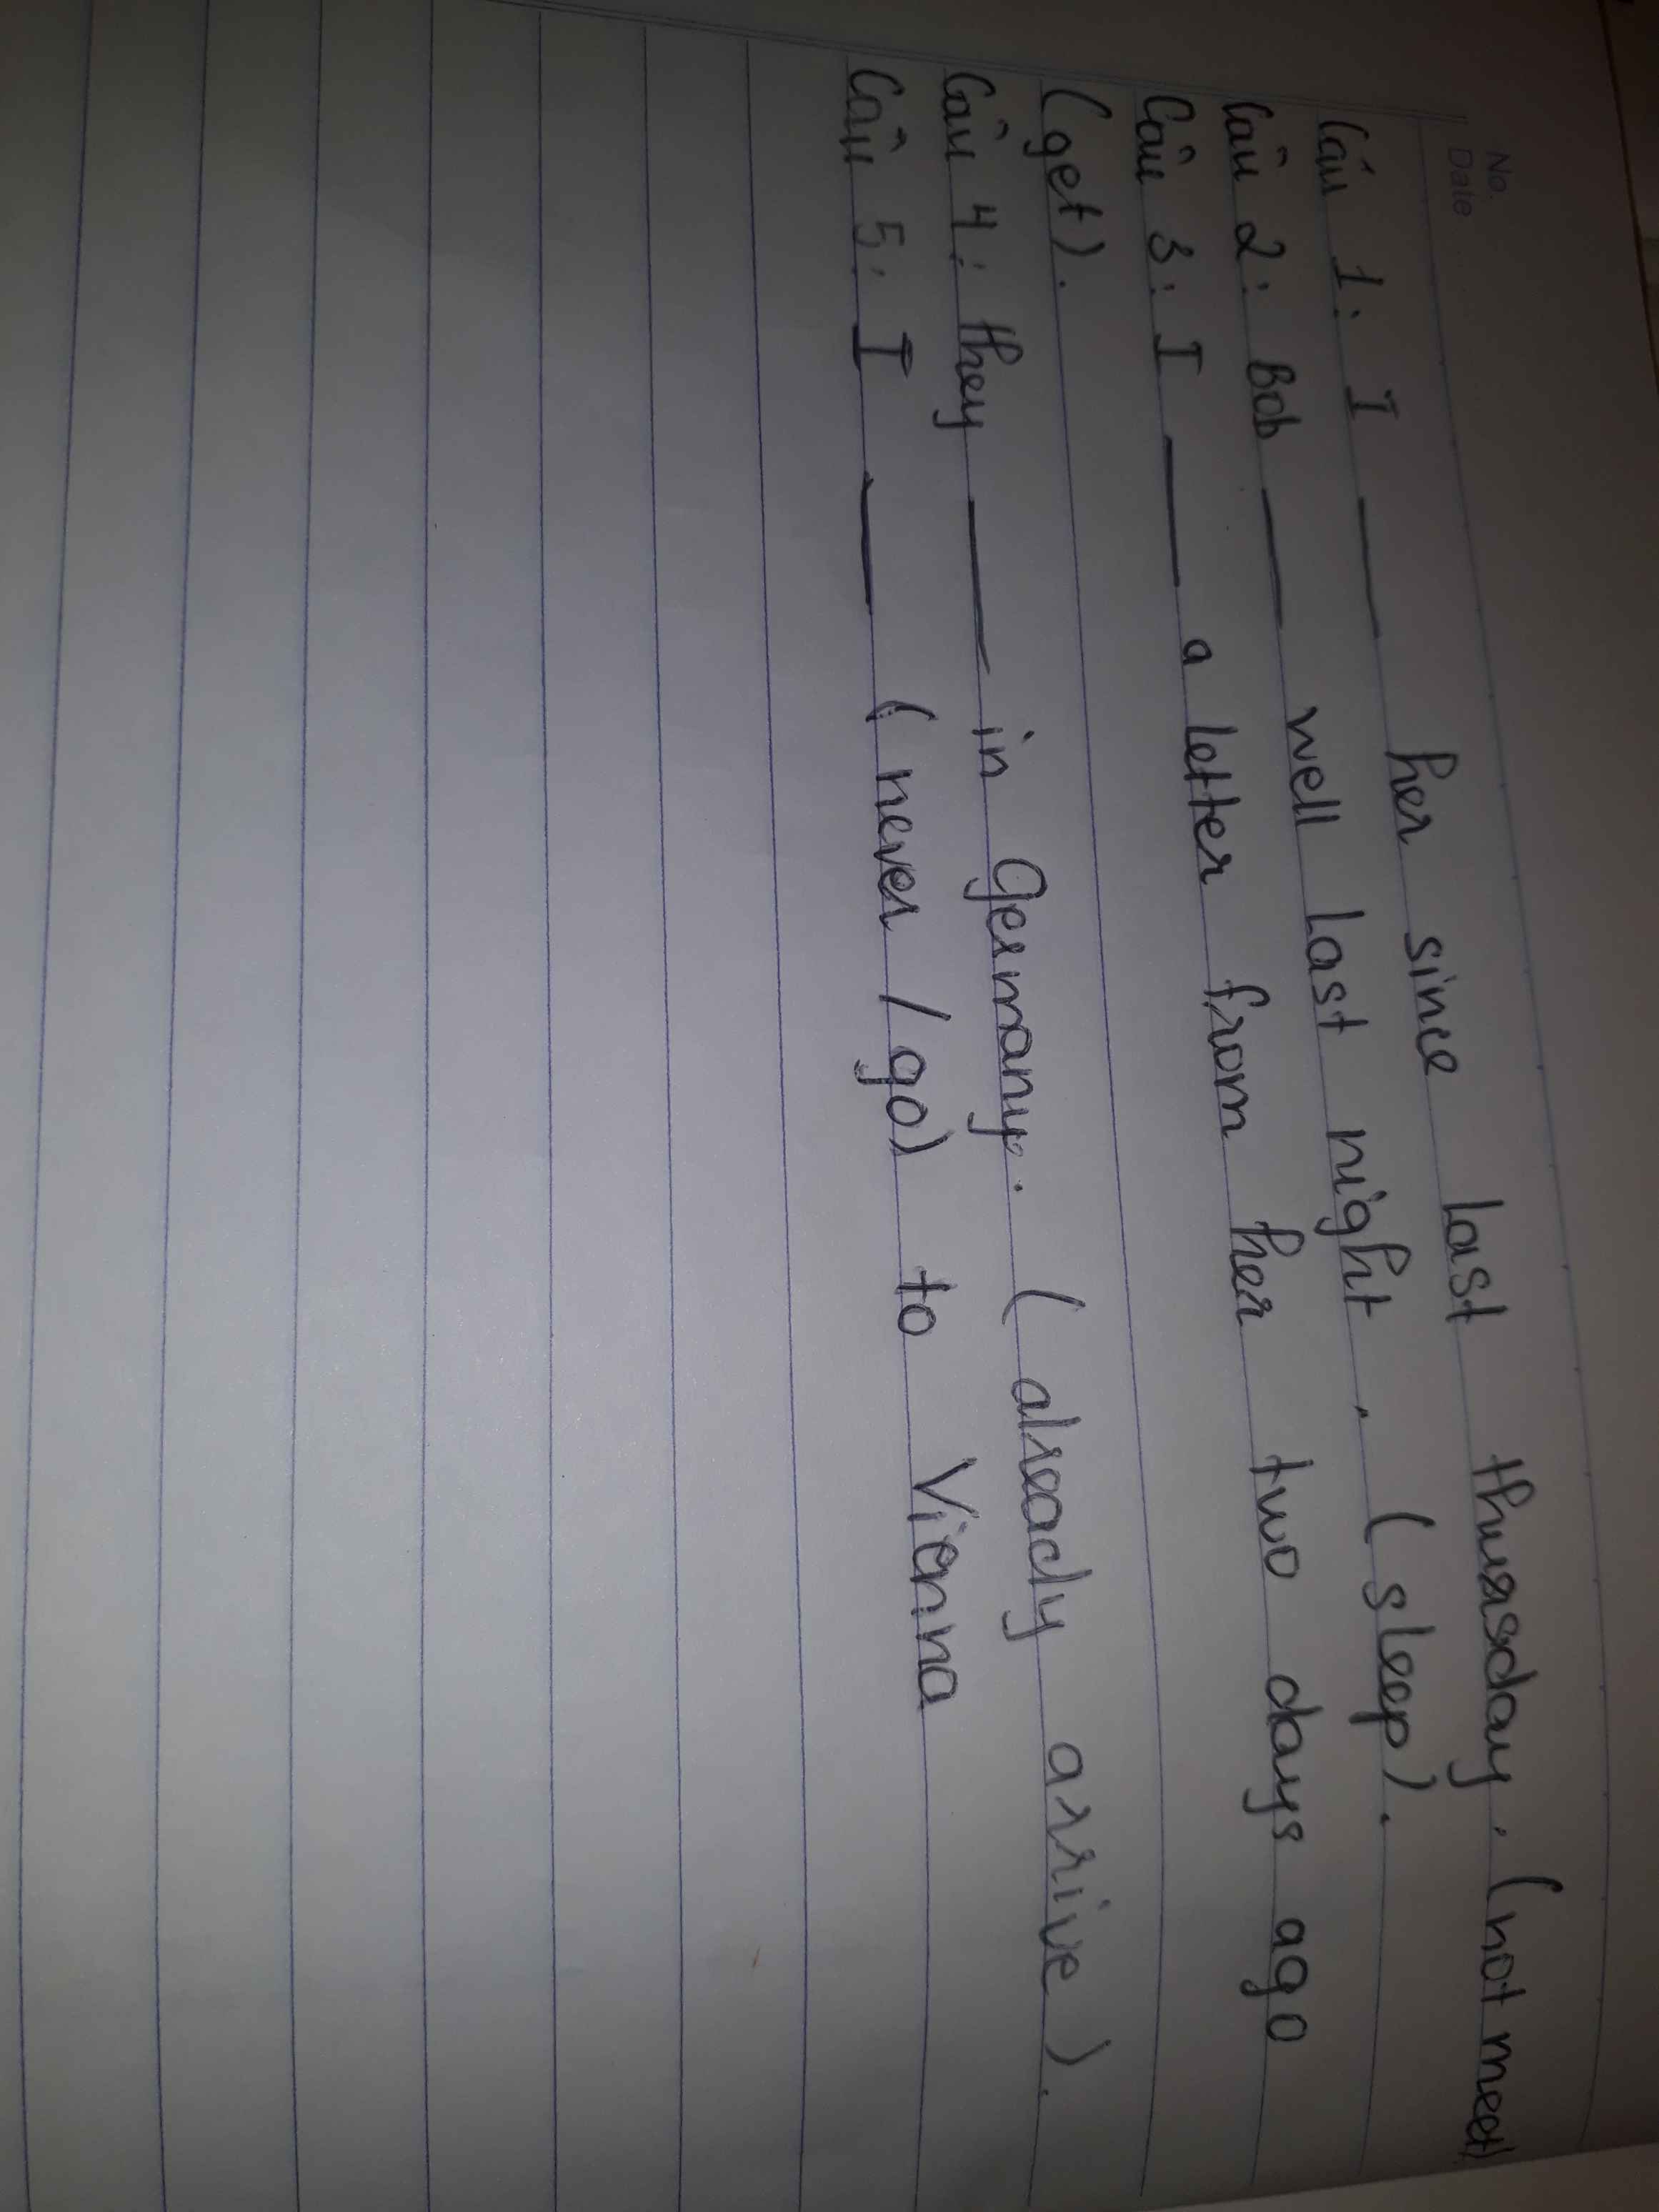 No.
Date
Câu 1: I ___ her since last thursday. (not meet)
Câu 2: Bob ___ well last night. (sleep).
Câu 3: I ___ a letter from her two days ago
(get).
Câu 4: they ___ in Germany. (already arrive).
Câu 5: I ___ (never / go) to Vienna